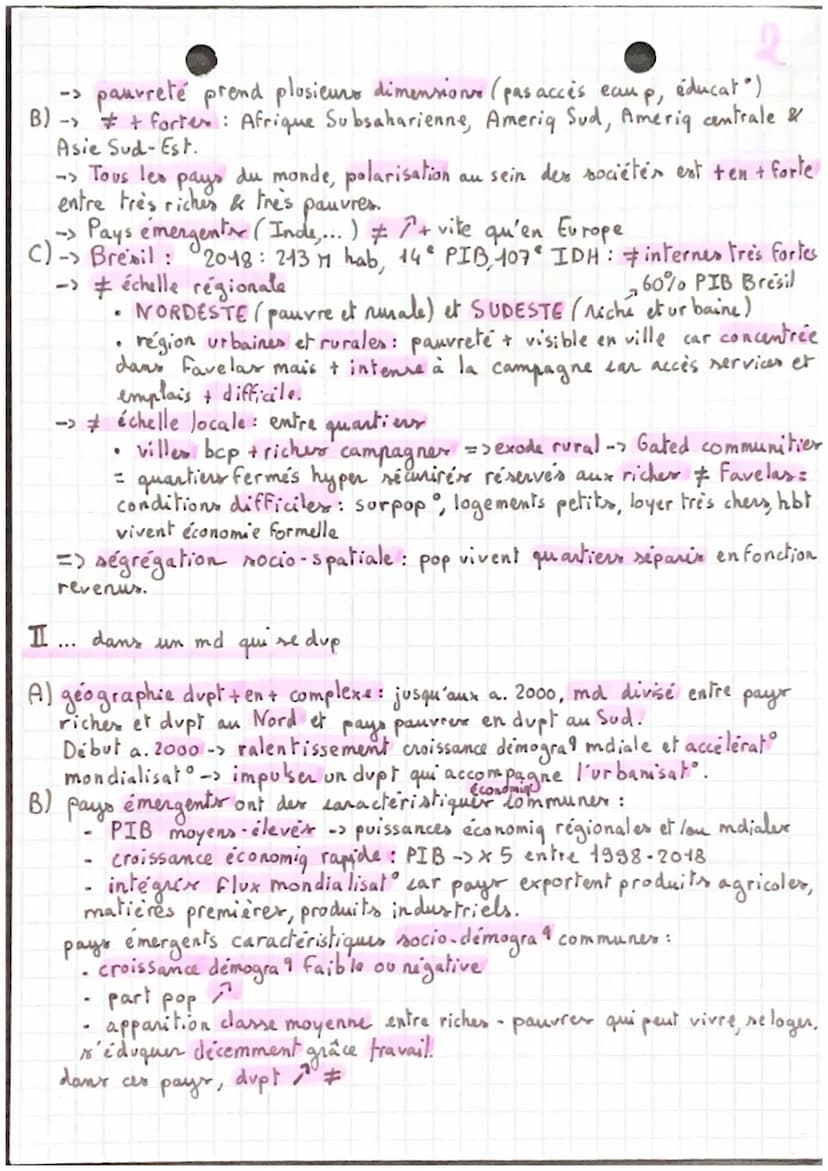 2
-> pauvreté prend plusieurs dimensions (pas accès eau p, éducat°)
B) -> ≠ + fortes : Afrique Subsaharienne, Ameriq Sud, Amériq centrale &
Asie Sud-Est.
-> Tous les pays du monde, polarisation au sein des sociétés est + en + forte
entre très riches & très pauvres.
-> Pays émergents (Inde,...) ≠ ↗ + vite qu'en Europe
C) -> Brésil : 2018 : 213 M hab, 14e PIB, 107e IDH : ≠ internes très fortes
-> ≠ échelle régionale → 60% PIB Brésil
• NORDESTE (pauvre et rurale) et SUDESTE (riche et urbaine)
• région urbaines et rurales : pauvreté + visible en ville car concentrée
dans favelas mais + intense à la campagne car accès services et
emplais + difficile.
-> ≠ échelle locale : entre quartiers
• villes bcp + riches campagnes => exode rural -> Gated communities
= quartiers fermés hyper sécurirés réservés aux riches ≠ Favelas =
conditions difficiles : surpop°, logements petits, loyer très chers, hbt
vivent économie formelle
=> ségrégation socio-spatiale : pop vivent quartiers séparés en fonction
revenus.
II ... dans un md qui se dvp
A) géographie dvpt + en + complexe : jusqu'aux a. 2000, md divisé entre pays
riches et dvpt au Nord et pays pauvres en dvpt au Sud.
Début a. 2000 -> ralentissement croissance démograq mdiale et accélérat°
mondialisat° -> impulser un dvpt qui accompagne l'urbanisat°.
B) pays émergents ont des caractéristiques économiq communes :
- PIB moyens-élevés -> puissances économiq régionales et/ou mdiales
- croissance économiq rapide : PIB -> x 5 entre 1998-2018
- intégrés flux mondialisat° car pays exportent produits agricoles,
matières premières, produits industriels.
pays émergents caractéristiques socio-démograq communes :
- croissance démograq faible ou négative
- part pop ↗
- apparition classe moyenne entre riches - pauvres qui peut vivre, se loger,
s'éduquer décemment grâce travail.
dans ces pays, dvpt ↗ ≠